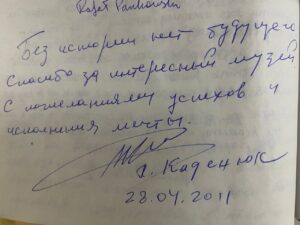 Без истории нет будущего
Спасибо за интересный музей
С пожеланиями успехов и
исполнения мечты.
Каденюк
28.04.2011